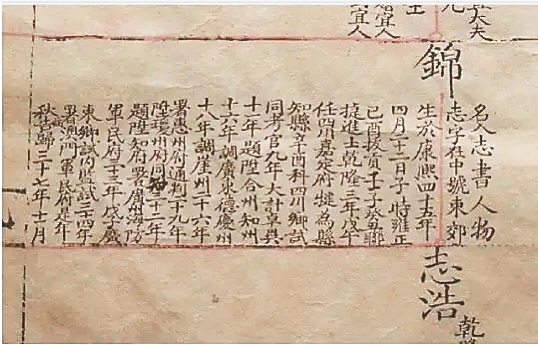 大夫
宜人
宜人
錦
名人志書人物
志字在中號東郊
生於康熙四十五年
四月十二日子時雍正
己酉拔貢壬子癸丑聯
捷進士乾隆三年戊午
任四川嘉定府犍為縣
知縣辛酉科四川鄉試
同考官九年大計卓異
十一年題陞合州知州
十六年調廣東德慶州
十八年調崖州二十六年
署惠州府通判二十九年
陞瓊州府同知二十二年
題陞知府署廣海防
軍民府二十三年戊寅
東鄉試內監試二十四年
署澳門軍民府是年
秋告歸二十七年十一月
志浩
乾